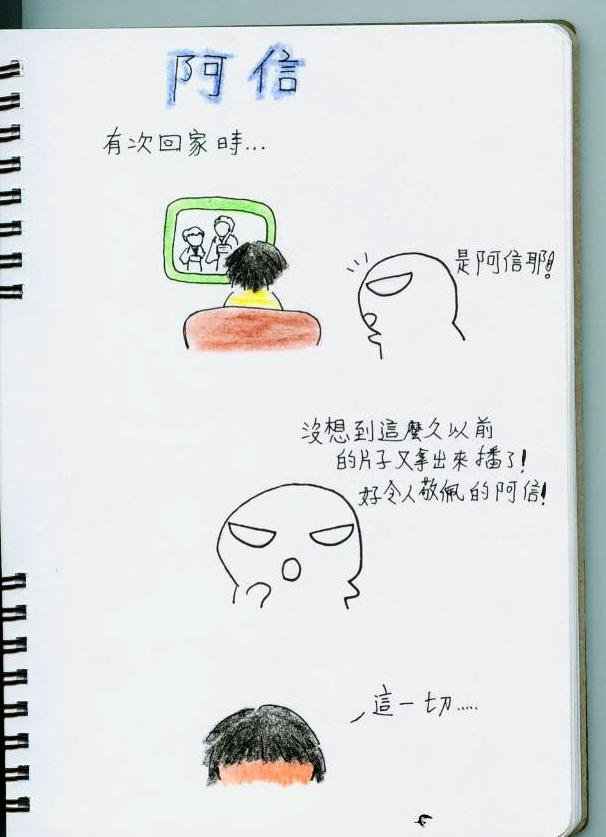 阿信
有次回家時...
是阿信耶!
沒想到這麼久以前
的片子又拿出來播了!
好令人敬佩的阿信!
這一切.....